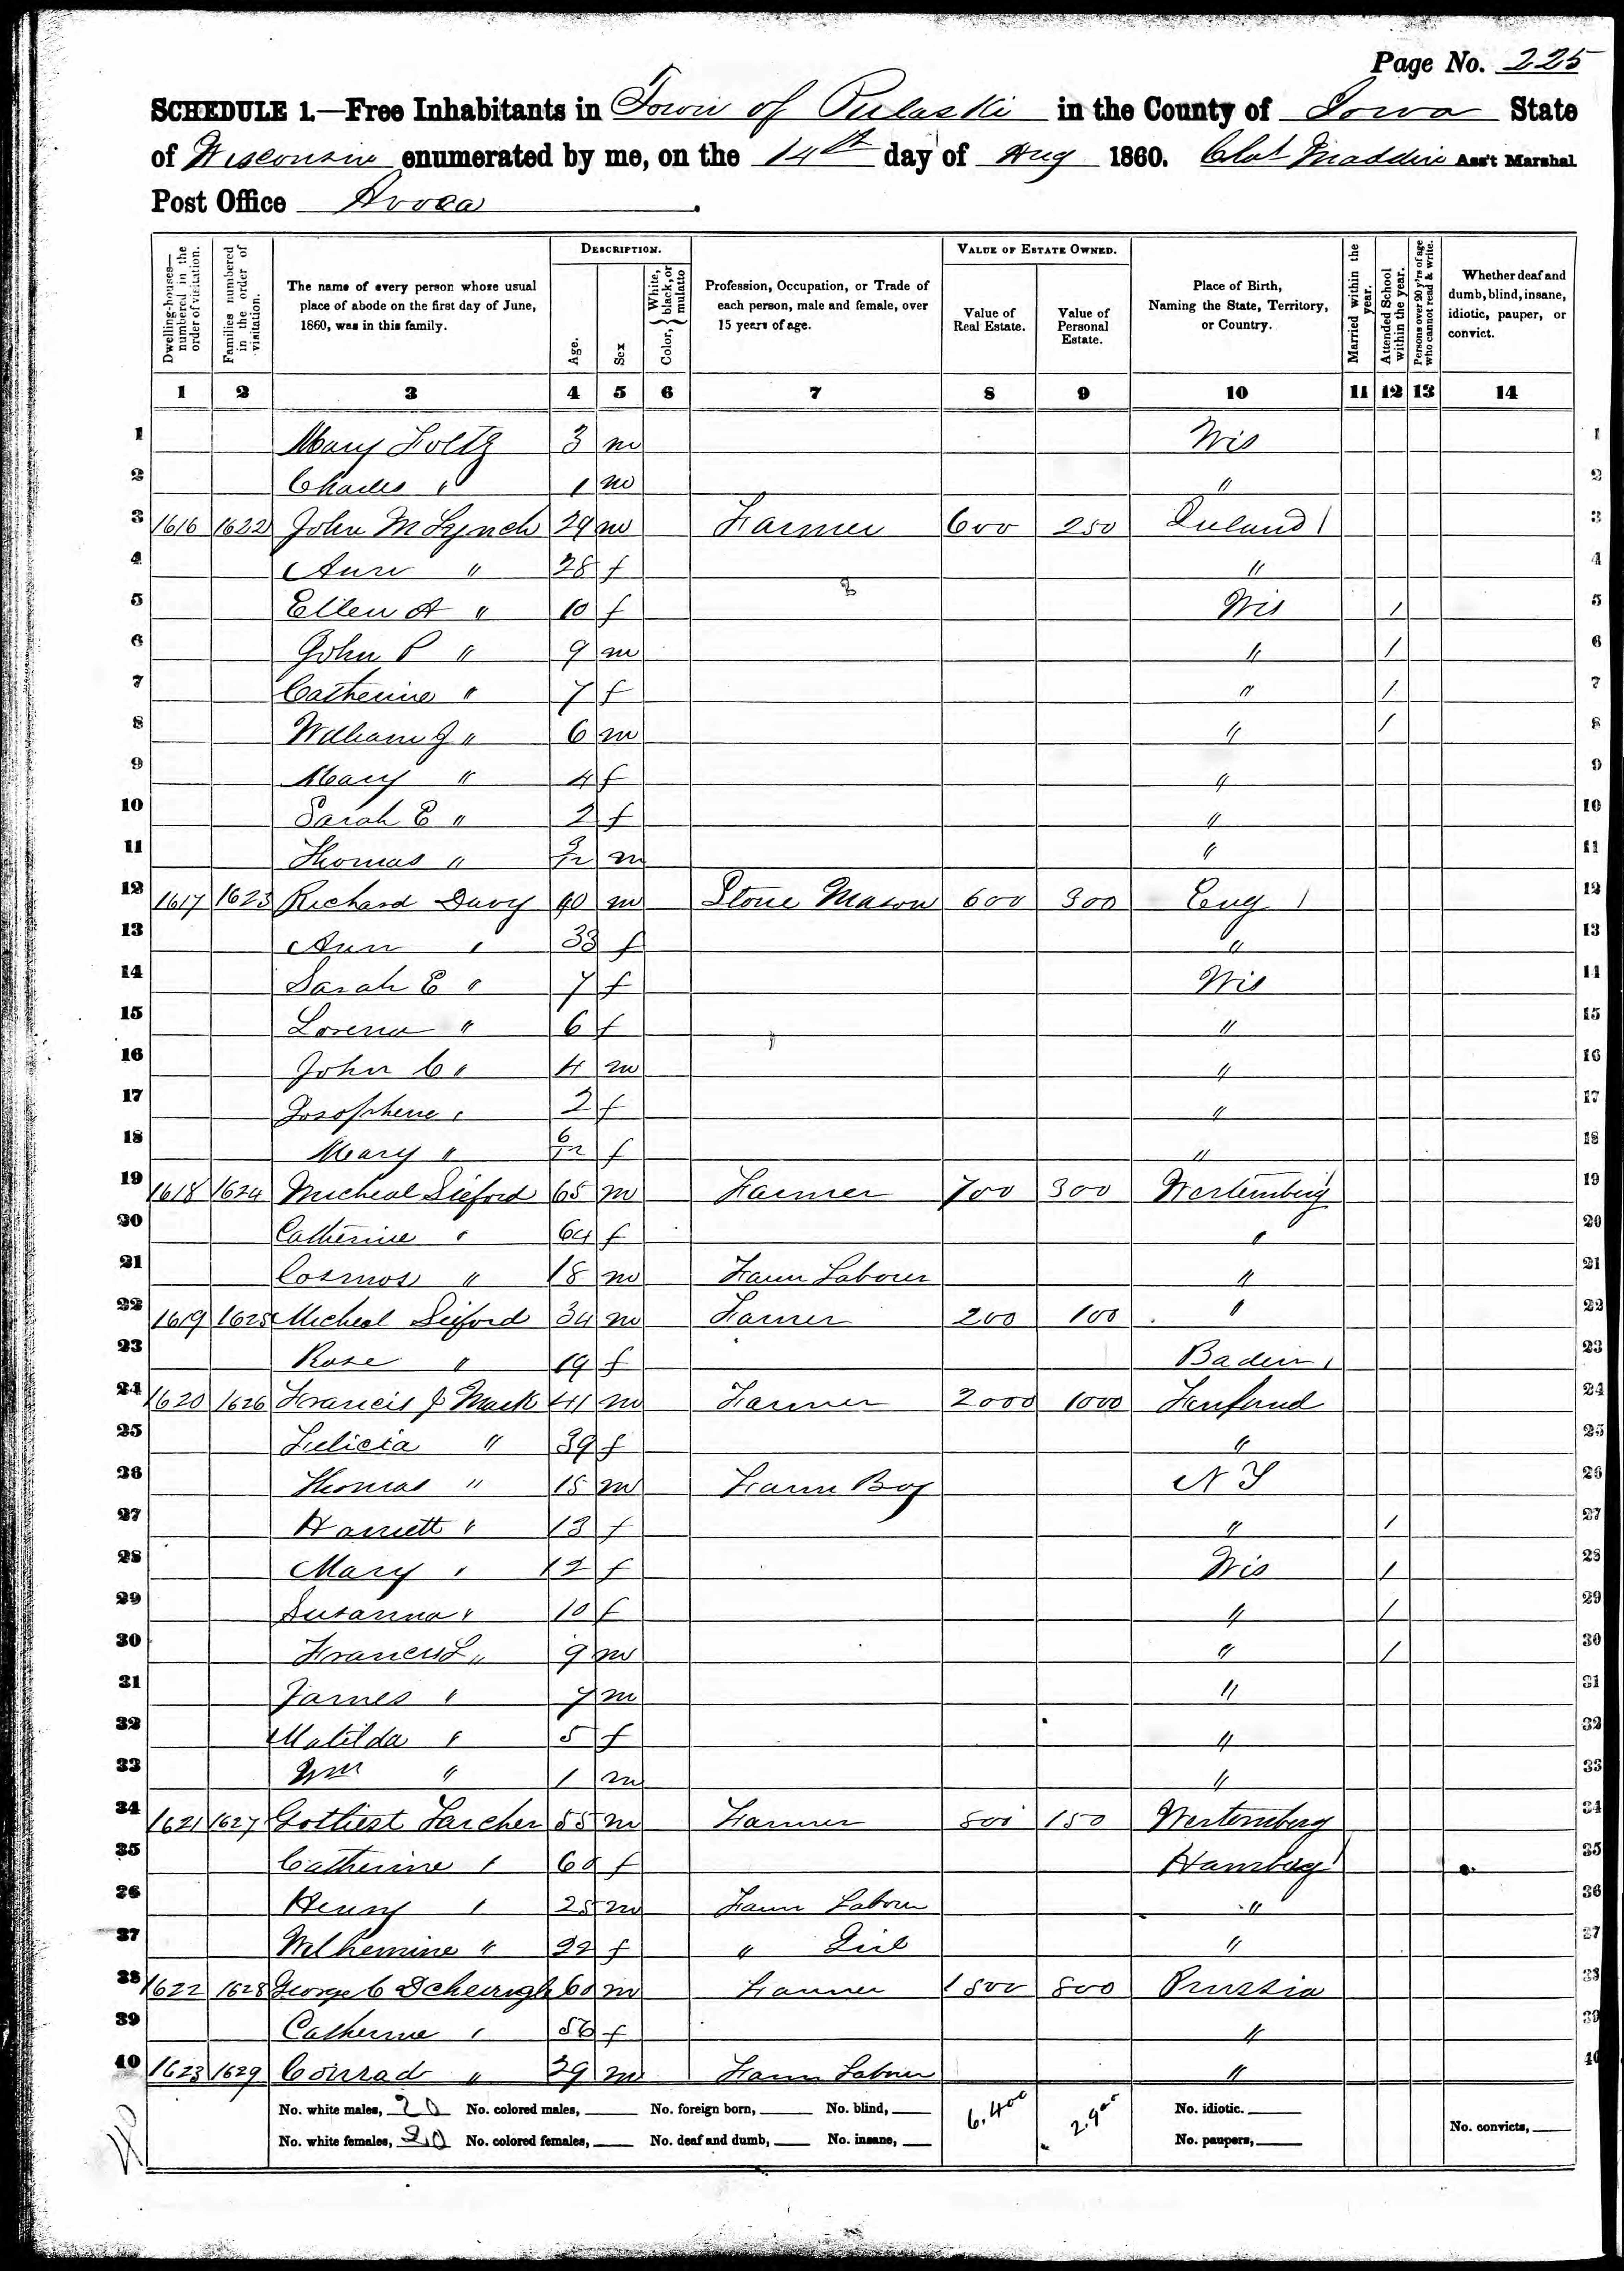 Page No. 225
SCHEDULE 1.—Free Inhabitants in Town of Pulaski in the County of Iowa State
of Wisconsin enumerated by me, on the 14th day of Aug 1860. Ass't Marshal
Post Office Avoca.
Dwelling-houses—numbered in the order of visitation.
Families numbered in the order of visitation.
The name of every person whose usual place of abode on the first day of June, 1860, was in this family.
DESCRIPTION.
Age.
Sex
Color, { White, black, or mulatto
Profession, Occupation, or Trade of each person, male and female, over 15 years of age.
VALUE OF ESTATE OWNED.
Value of Real Estate.
Value of Personal Estate.
Place of Birth, Naming the State, Territory, or Country.
Married within the year.
Attended School within the year.
Persons over 20 y'rs of age who cannot read & write.
Whether deaf and dumb, blind, insane, idiotic, pauper, or convict.
1 2 3 4 5 6 7 8 9 10 11 12 13 14
1 Mary Foltz 3 m Wis 1
2 Charles " 1 m " 2
3 1616 1622 John M Lynch 29 m Farmer 600 250 Ireland / 3
4 Ann " 28 f " 4
5 Ellen A " 10 f Wis / 5
6 John P " 9 m " / 6
7 Catherine " 7 f " / 7
8 William J " 6 m " / 8
9 Mary " 4 f " 9
10 Sarah E " 2 f " 10
11 Thomas " 3/12 m " 11
12 1617 1623 Richard Davy 40 m Stone Mason 600 300 Eng / 12
13 Ann " 33 f " 13
14 Sarah E " 7 f Wis 14
15 Lorena " 6 f " 15
16 John C " 4 m " 16
17 Josophene " 2 f " 17
18 Mary " 6/12 f " 18
19 1618 1624 Micheal Sieford 65 m Farmer 700 300 Wertemberg / 19
20 Catherine " 64 f " 20
21 Cosmos " 18 m Farm Laborer " 21
22 1619 1625 Micheal Sieford 34 m Farmer 200 100 " 22
23 Rose " 19 f Baden / 23
24 1620 1626 Francis J Mark 41 m Farmer 2000 1000 24
25 Felicia " 39 f " 25
26 Thomas " 15 m Farm Boy N Y 26
27 Harriett " 13 f " / 27
28 Mary " 12 f Wis / 28
29 Susanna " 10 f " / 29
30 Francis L " 9 m " / 30
31 James " 7 m " 31
32 Matilda " 5 f " 32
33 Wm " 1 m " 33
34 1621 1627 55 m Farmer 800 150 Wertemberg 34
35 Catherine " 60 f Hamburg / 35
36 Henry " 25 m Farm Laborer " 36
37 Wilhemine " 22 f " Girl " 37
38 1622 1628 George C 60 m Farmer 1800 800 Prussia 38
39 Catherine " 56 f " 39
40 1623 1629 Conrad " 29 m Farm Laborer " 40
No. white males, 20 No. colored males, No. foreign born, No. blind, 6.400 2.900 No. idiotic.
No. white females, 20 No. colored females, No. deaf and dumb, No. insane, No. paupers, No. convicts,
40